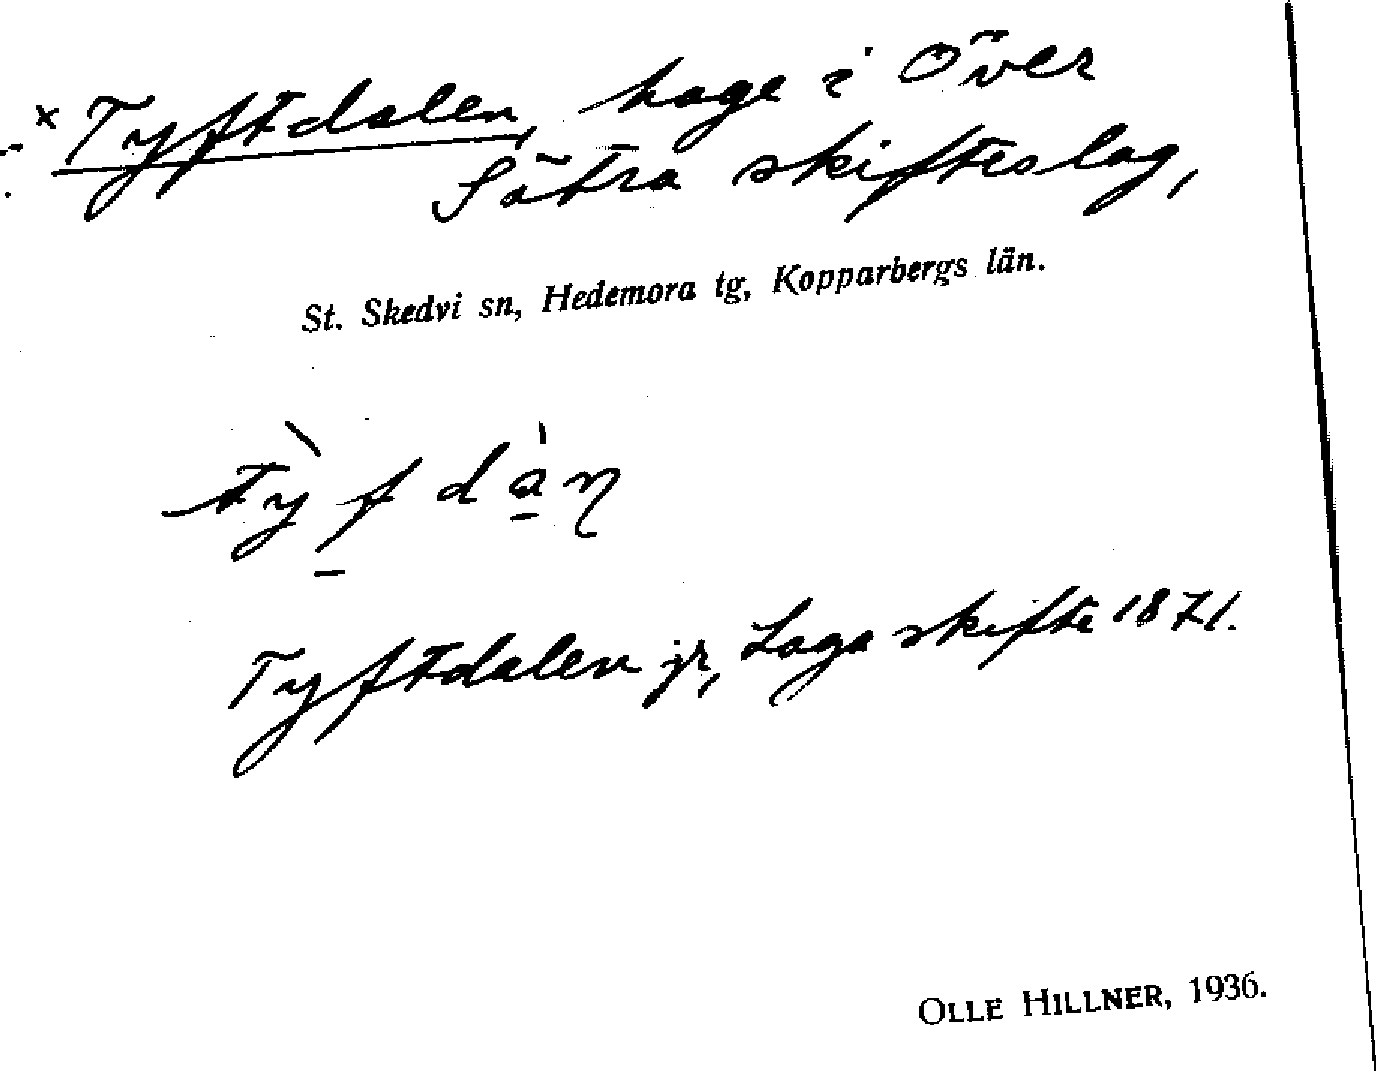 × Tyftdalen, hage i Över
Sätra skifteslag,
St. Skedvi sn, Hedemora tg, Kopparbergs län.
tỳf dȧn
Tyftdalen jr, Laga skifte 1871.
OLLE HILLNER, 1936.